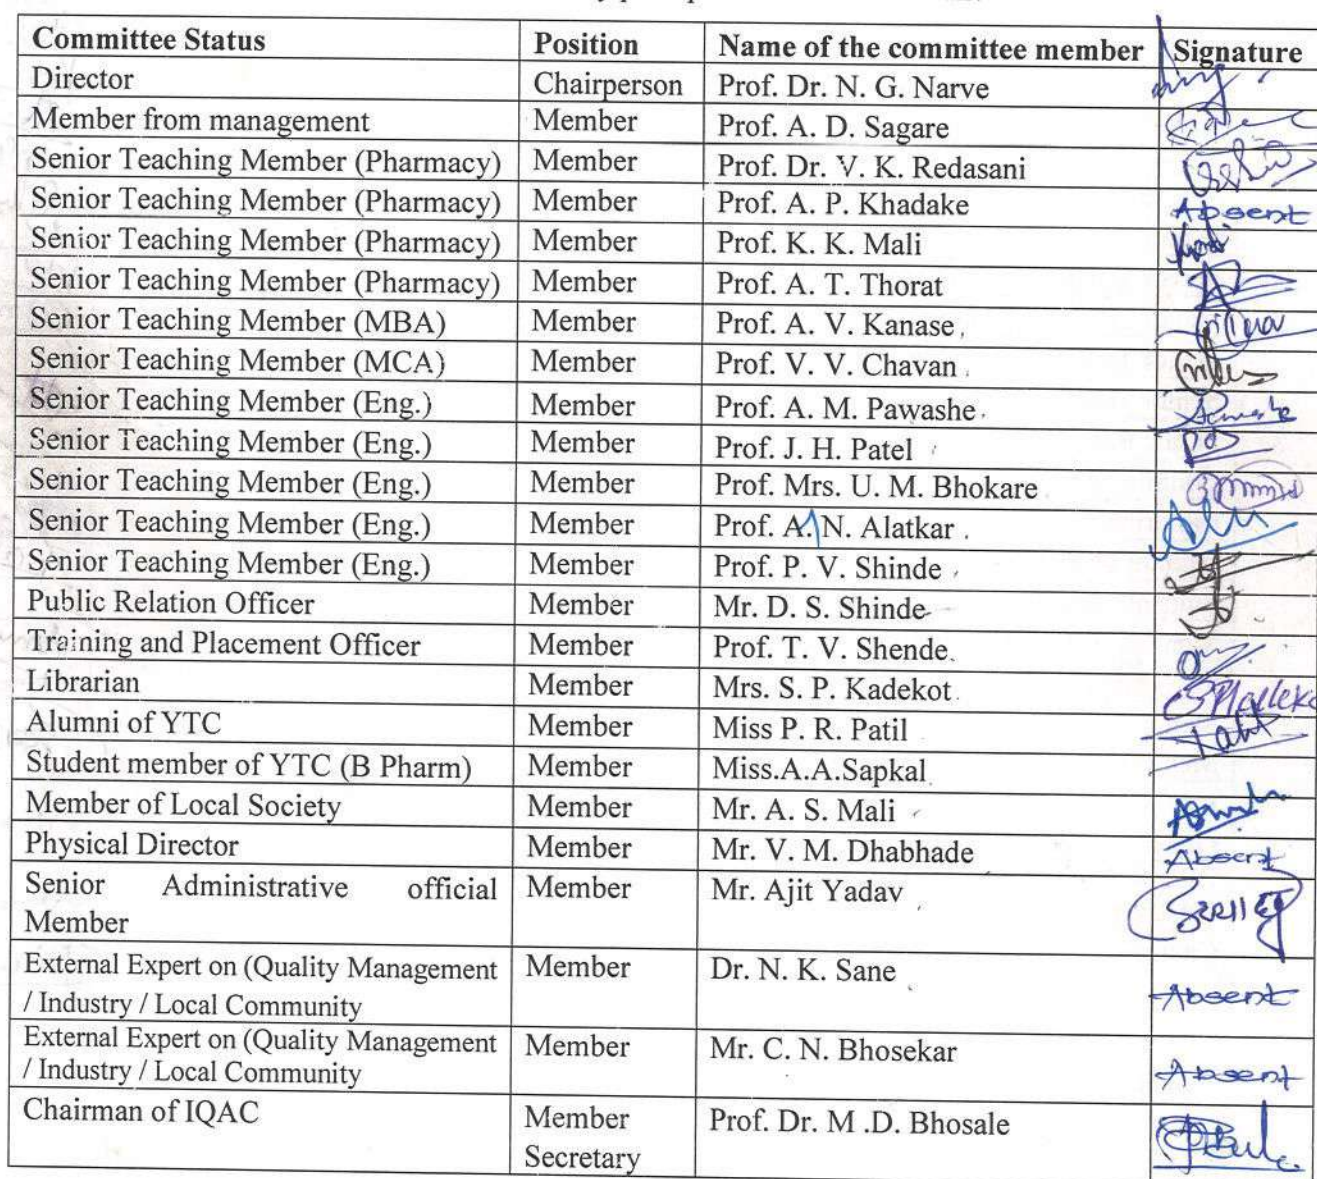 Committee Status Position Name of the committee member Signature
Director Chairperson Prof. Dr. N. G. Narve
Member from management Member Prof. A. D. Sagare
Senior Teaching Member (Pharmacy) Member Prof. Dr. V. K. Redasani
Senior Teaching Member (Pharmacy) Member Prof. A. P. Khadake Absent
Senior Teaching Member (Pharmacy) Member Prof. K. K. Mali
Senior Teaching Member (Pharmacy) Member Prof. A. T. Thorat
Senior Teaching Member (MBA) Member Prof. A. V. Kanase
Senior Teaching Member (MCA) Member Prof. V. V. Chavan
Senior Teaching Member (Eng.) Member Prof. A. M. Pawashe
Senior Teaching Member (Eng.) Member Prof. J. H. Patel
Senior Teaching Member (Eng.) Member Prof. Mrs. U. M. Bhokare
Senior Teaching Member (Eng.) Member Prof. A. N. Alatkar
Senior Teaching Member (Eng.) Member Prof. P. V. Shinde
Public Relation Officer Member Mr. D. S. Shinde
Training and Placement Officer Member Prof. T. V. Shende
Librarian Member Mrs. S. P. Kadekot
Alumni of YTC Member Miss P. R. Patil
Student member of YTC (B Pharm) Member Miss.A.A.Sapkal
Member of Local Society Member Mr. A. S. Mali
Physical Director Member Mr. V. M. Dhabhade Absent
Senior Administrative official Member Mr. Ajit Yadav
Member
External Expert on (Quality Management Member Dr. N. K. Sane
/ Industry / Local Community Absent
External Expert on (Quality Management Member Mr. C. N. Bhosekar
/ Industry / Local Community Absent
Chairman of IQAC Member Prof. Dr. M .D. Bhosale
Secretary